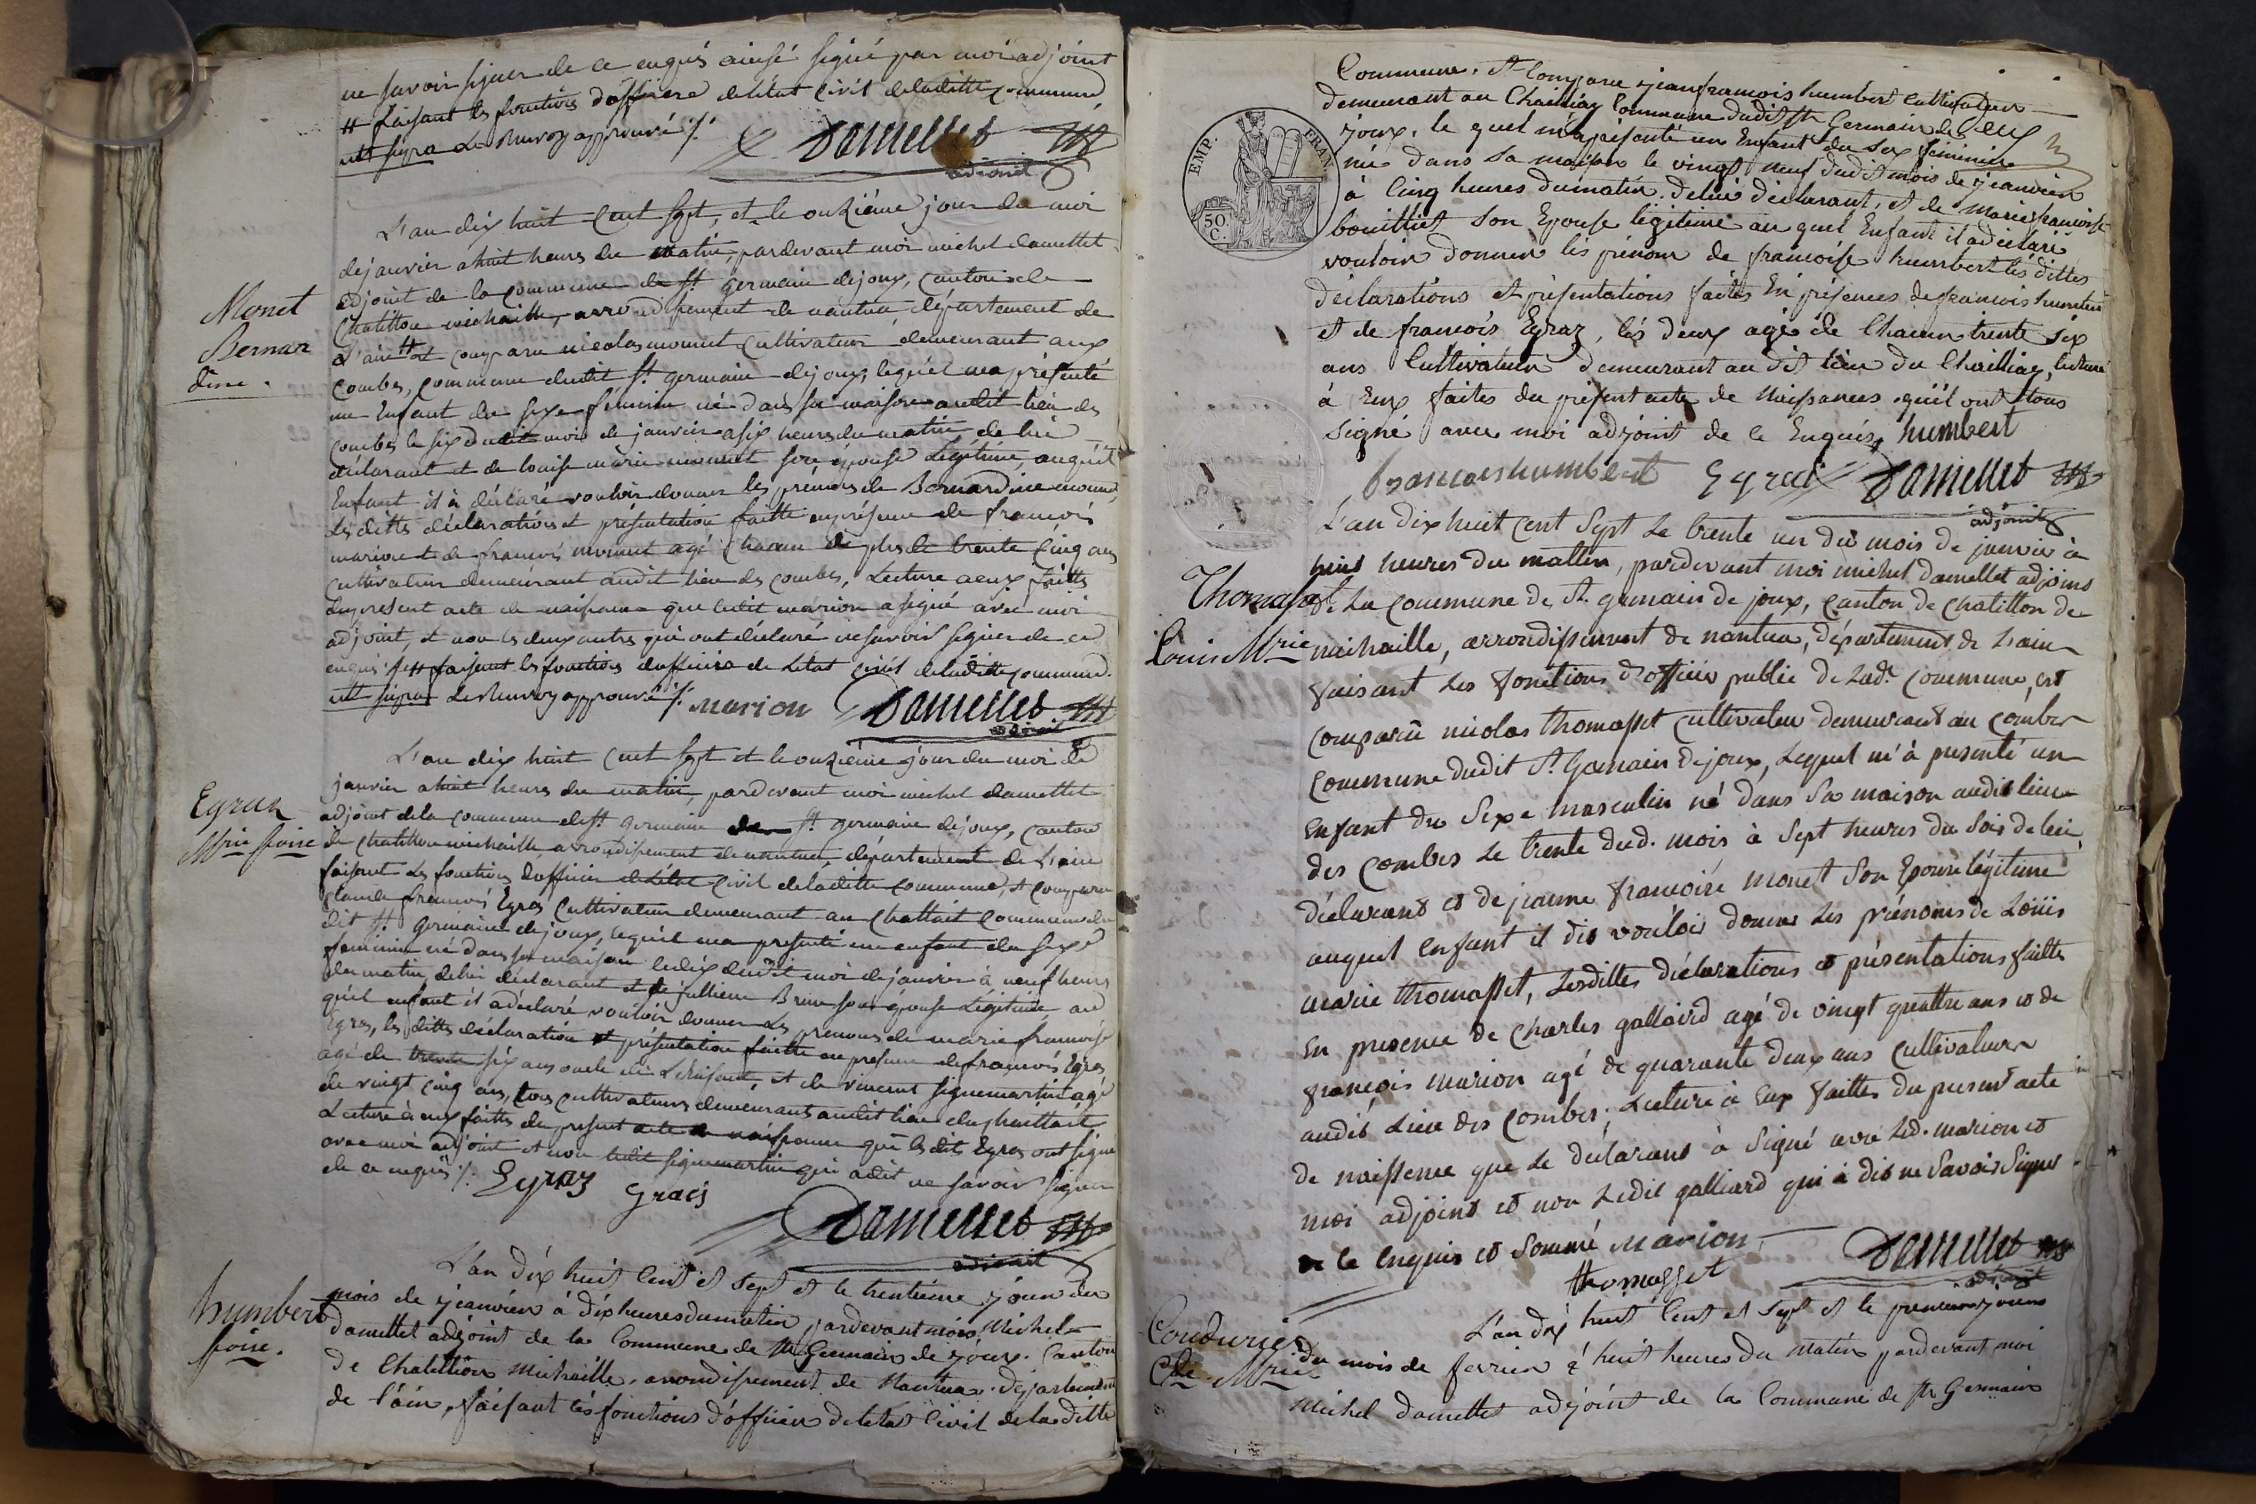 ne savoir signer de ce enquis ainsé signé par moi adjoint
# faisant les fonctions d'officiere de l'état civil de laditte commune
Le Renvoy approuvé ./.
Damellet
adjoint
Monet
Bernar
dine.
L'an dix huit cent sept, et le onzième jour du moi
de janvier a huit heurs du matin, pardevant moi michel damellet
adjoint de la commune de St. germain dejoux, canton de
Chatillon michaille, arrondissement de nantua département de
L'ain # est comparu nicolas monnet cultivateur demeurant aux
combes, commune dudit St. germain dejoux, lequel ma présenté
un Enfant du sexe feminin né dans sa maison audit lieu des
combes le six dudit mois de janvier a six heurs du matin de lui
déclarant et de louise marie monnet son épouse Légitime, auquel
Enfant il a déclaré vouloir donner les prénoms de Bernardine monnet,
Les dittes déclarations et présentation faitte en présence de francois
marion et de francois monnet agé chacun de plus de trente cinq ans
cultivateur demeurant audit lieu des combes, Lecture a eux faitte
du present acte de naissance que ledit marion a signé avec moi
adjoint, et non les deux autres qui ont déclaré ne savoir signer de ce
enquis ./. # faisant les fonctions d'officiere de L'état civil de laditte commune
Le Renvoy approuvé ./. marion Damellet
adjoint
Egraz
Mrie foise
L'an dix huit cent sept et le onzième jour du moi de
janvier a huit heures du matin, pardevant moi michel damellet
adjoint de la commune de St. germain de St. germain dejoux, canton
de Chatillon michaille arrondissement de nantua, département de L'ain
faisant Les fonctions d'officier de L'état civil de laditte commune, et comparu
claude francois Egras cultivateur demeurant au chattait commune du
dit St. germain dejoux, lequel ma presenté un enfant du sexe
feminin né dans sa maison le dix dudit moi de janvier à neuf heurs
du matin, de lui déclarant et de jullienne Brun son épouse Légitime au
quel enfant il a déclaré vouloir donner Les prenoms de marie francoise
Egras, les dittes déclaration et présentation faitte en presence de francois Egras
agé de trente six ans oncle de L'enfant, et de vincent siquemartin agé
de vingt cinq ans, tous cultivateurs demeurants audit lieu du chattait
Lecture à eux faitte du présent acte de naissance que les dits Egras ont signé
avec moi adjoint et non ledit siquemartin qui a dit ne savoir signer
de ce enquis ./. Egraz Graci
Damellet
adjoint
humbert
foise.
L'an dix huit cent et sept et le trentième jour du
mois de jeanvier à dix heures du matin, pardevant moi Michel
damettet adjoint de la Commune de St Germain de joux. Canton
de Chatillion Michaille. arrondissement de Nantua. departement
de l'ain, faisant les fonctions d'officier de letat Civil de la ditte
Commune. et Comparu jean francois humbert Cultivateur
demeurant au Chailliay Commune dudit St Germain de
joux. le quel m'a présenté un Enfant du sex féminin
né dans sa maison le vingt neuf dudit mois de jeanvier
à Cinq heures du matin. de lui déclarant, et de Marie francoise
bouilliet son Epouse légitime au quel Enfant il a déclaré
vouloir donner les prénom de francoise humbert les dittes
déclarations et présentations faites En présences de francois humbert
et de francois Egraz, les deux agé de Chacun trente six
ans Cultivateur demeurant au dit lieu du Chailliay, lecture
à Eux faites du présent acte de Naissances qu'il ont tous
signé avec moi adjoint de ce Enquis, humbert
francois humbert Egraz Damellet
adjoint
EMP. FRAN
50 C.
Thomasset
Louis Mrie
L'an dix huit cent sept Le trente un du mois de janvier à
huit heures du mattin, pardevant moi michel damellet adjoint
de La commune de St. germain de joux, canton de chatillon de
michaille, arrondissement de nantua, département de L'ain
faisant Les fonctions d'officier public de Lade. commune, est
comparu nicolas thomasset cultivateur demeurant au combes
commune dudit St. Germain de joux, Lequel m'a presenté un
enfant du sexe masculin né dans sa maison audit lieu
des combes Le trente dud. mois à sept heures du soir de lui
déclarant et de jeanne francoise monet son Epouse légitime
auquel enfant il dit vouloir donner Les prénoms de Louis
marie thomasset, Lesdittes déclarations et présentations faittes
En presence de charles gallaird agé de vingt quattre ans et de
françois marion agé de quarante deux ans cultivateurs
audit Lieu des combes; Lecture à Eux faitte du present acte
de naissence que Le déclarant à signé avec Led. marion et
moi adjoint et non Ledit galliard qui à dit ne savoir signer
de ce enquis et sommé marion
thomasset Damellet
adjoint
Coudurier
Che Mrie
L'an dix huit Cent et sept et le premier jours
du mois de fevrier à huit heures du Matin pardevant moi
Michel damettet adjoint de la Commune de St Germain